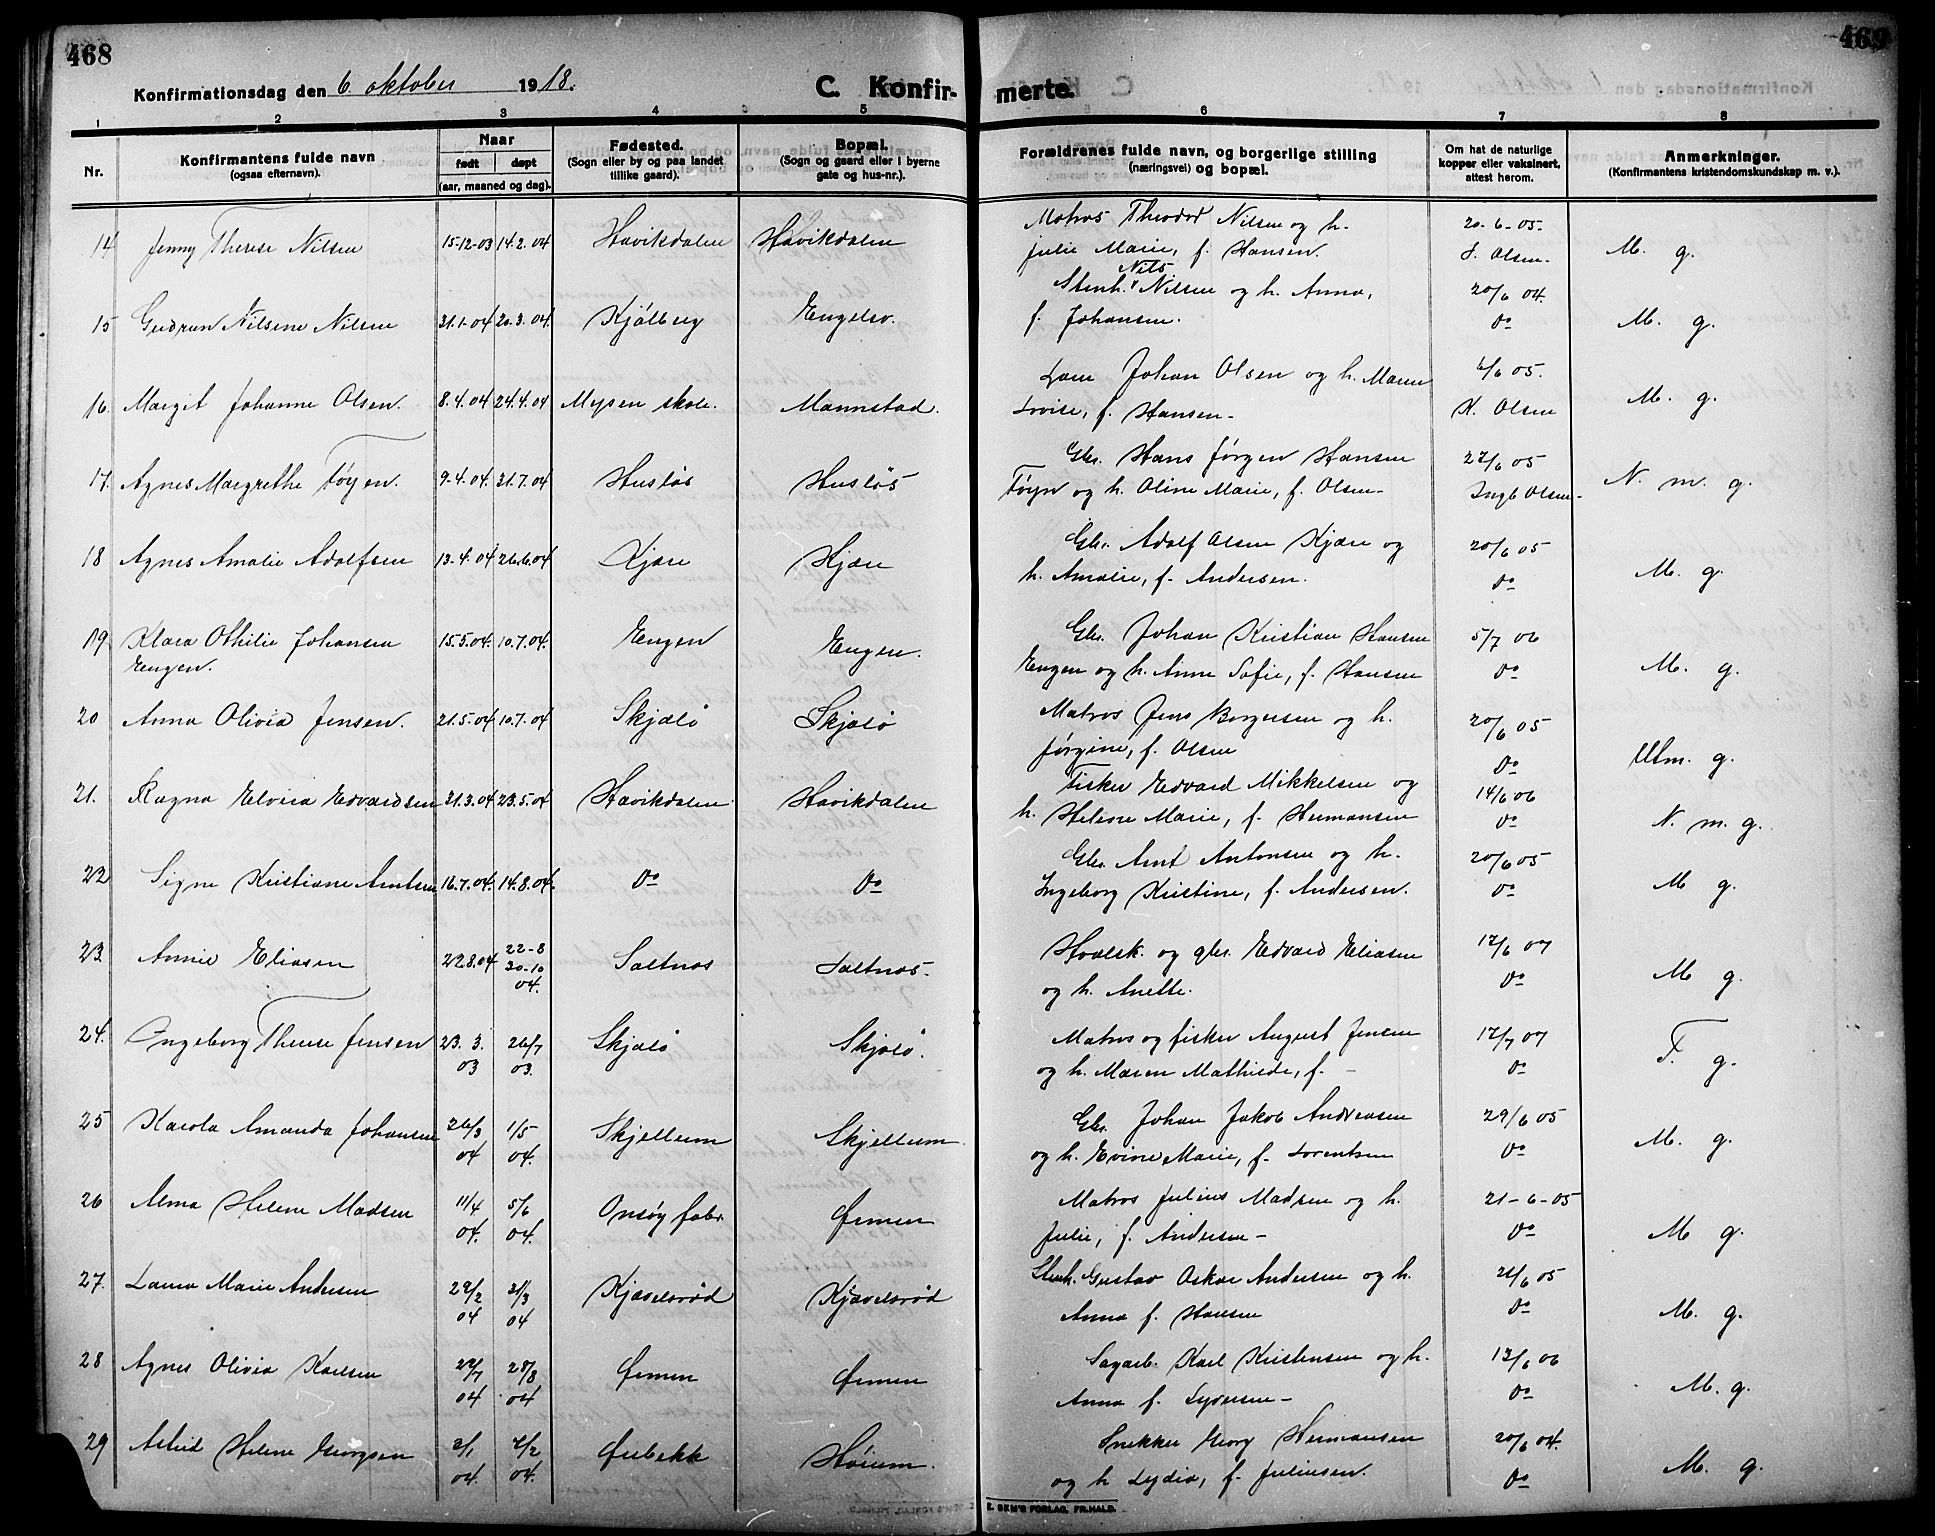 468
469
Konfirmationsdag den 6 oktober 1918.
C. Konfirmerte.
1 2 3 4 5 6 7 8
Nr.
Konfirmantens fulde navn
(ogsaa efternavn).
Naar
født døpt
(aar, maaned og dag).
Fødested.
(Sogn eller by og paa landet
tillike gaard).
Bopæl.
(Sogn og gaard eller i byerne
gate og hus-nr.).
Forældrenes fulde navn, og borgerlige stilling
(næringsvei) og bopæl.
Om hat de naturlige
kopper eller vaksinert,
attest herom.
Anmerkninger.
(Konfirmantens kristendomskundskap m. v.).
14 Jenny Therese Nilsen 15-12-03 14.2.04 Havikdalen Havikdalen Matros Theodor Nilsen og h. 20-6-05.
Julie Marie, f. Hansen. J. Olsen. M. g.
15 Gudrun Nilsine Nilsen 31.1.04 20.3.04. Kjølberg Engelsv. Stenh. Nils Nilsen og h. Anna, 20/6 04.
f. Johansen. Do M. g.
16. Margit Johanne Olsen. 8.4.04 24.4.04 Mysen skole. Mannstad. Johan Olsen og h. Maren 6/6 05.
Lovise, f. Hansen- K. Olsen M. g.
17. Agnes Margrethe Tøyen. 9.4.04. 31.7.04 Husløs Husløs Gbr. Hans Jørgen Hansen 27/6 05
Tøyen og h. Oline Marie, f. Olsen- Ingb Olsen- N. m. g.
18 Agnes Amalie Adolfsen 13.4.04 26.6.04 Kjære Kjære Gbr. Adolf Olsen Kjære og 20/6 05
h. Amalie, f. Andersen. Do M. g.
19 Klara Othilie Johansen 15.5.04. 10.7.04. Engen Engen. Gbr. Johan Kristian Hansen 5/7 06
Engen. Engen og h. Anne Sofie, f. Hansen Do M. g.
20 Anna Olivia Jensen. 21.5.04 10.7.04 Skjælø Skjælø Matros Jens Borgersen og h. 20/6 05
Jørgine, f. Olsen Do Utm. g.
21. Ragna Elvira Edvardsen 21.3.04 23.5.04 Havikdalen Havikdalen Fisker Edvard Mikkelsen og 14/6 06
h. Helene Marie, f. Hermansen Do N. m. g.
22 Signe Kristiane Arntsen 16.7.04. 14.8.04. Do Do Gbr. Arnt Antonsen og h. 20/6 05
Ingeborg Kristine, f. Andersen. Do M g.
23. Annie Eliasen 22.8.04 22-8
30-10
04. Saltnes Saltnes- Hvalsk. og gbr. Edvard Eliasen 17/6 07
og h. Anette. Do M g.
24. Ingeborg Therese Jensen 23. 3.
03 26/7
03. Skjælø Skjælø. Matros og fisker August Jensen 17/7 07
og h. Maren Mathilde, f. - Do T. g.
25 Karola Amanda Johansen 26/3
04 1/5
04. Skjellum Skjellum Gbr. Johan Jakob Andreasen 29/6 05
og h. Evine Marie, f. Lorentsen Do M. g.
26 Alma Helene Madsen 11/4
04. 5/6
04. Onsøy fabr. Ørmen Matros Julius Madsen og h. 21-6-05
Julie, f. Andersen- Do M g.
27. Laura Marie Andersen 29/2
04 31/3
04 Kjævelsrød Kjævelsrød Stenh. Gustav Oskar Andersen og h. 21/6 05
Anna f. Hansen Do M. g.
28 Agnes Olivia Karlsen 22/7
04 28/8
04 Ørmen Ørmen Sagarb. Karl Kristensen og h. 13/6 06
Anna f. Syversen- Do M. g.
29 Astrid Helene Georgsen 2/1
04. 7/2
04. Ørebekk Høium. Snekker Georg Hermansen 20/6 04.
og h Lydia, f. Juliussen. Do M. g.
E. SEM'S FORLAG, FR.HALD.